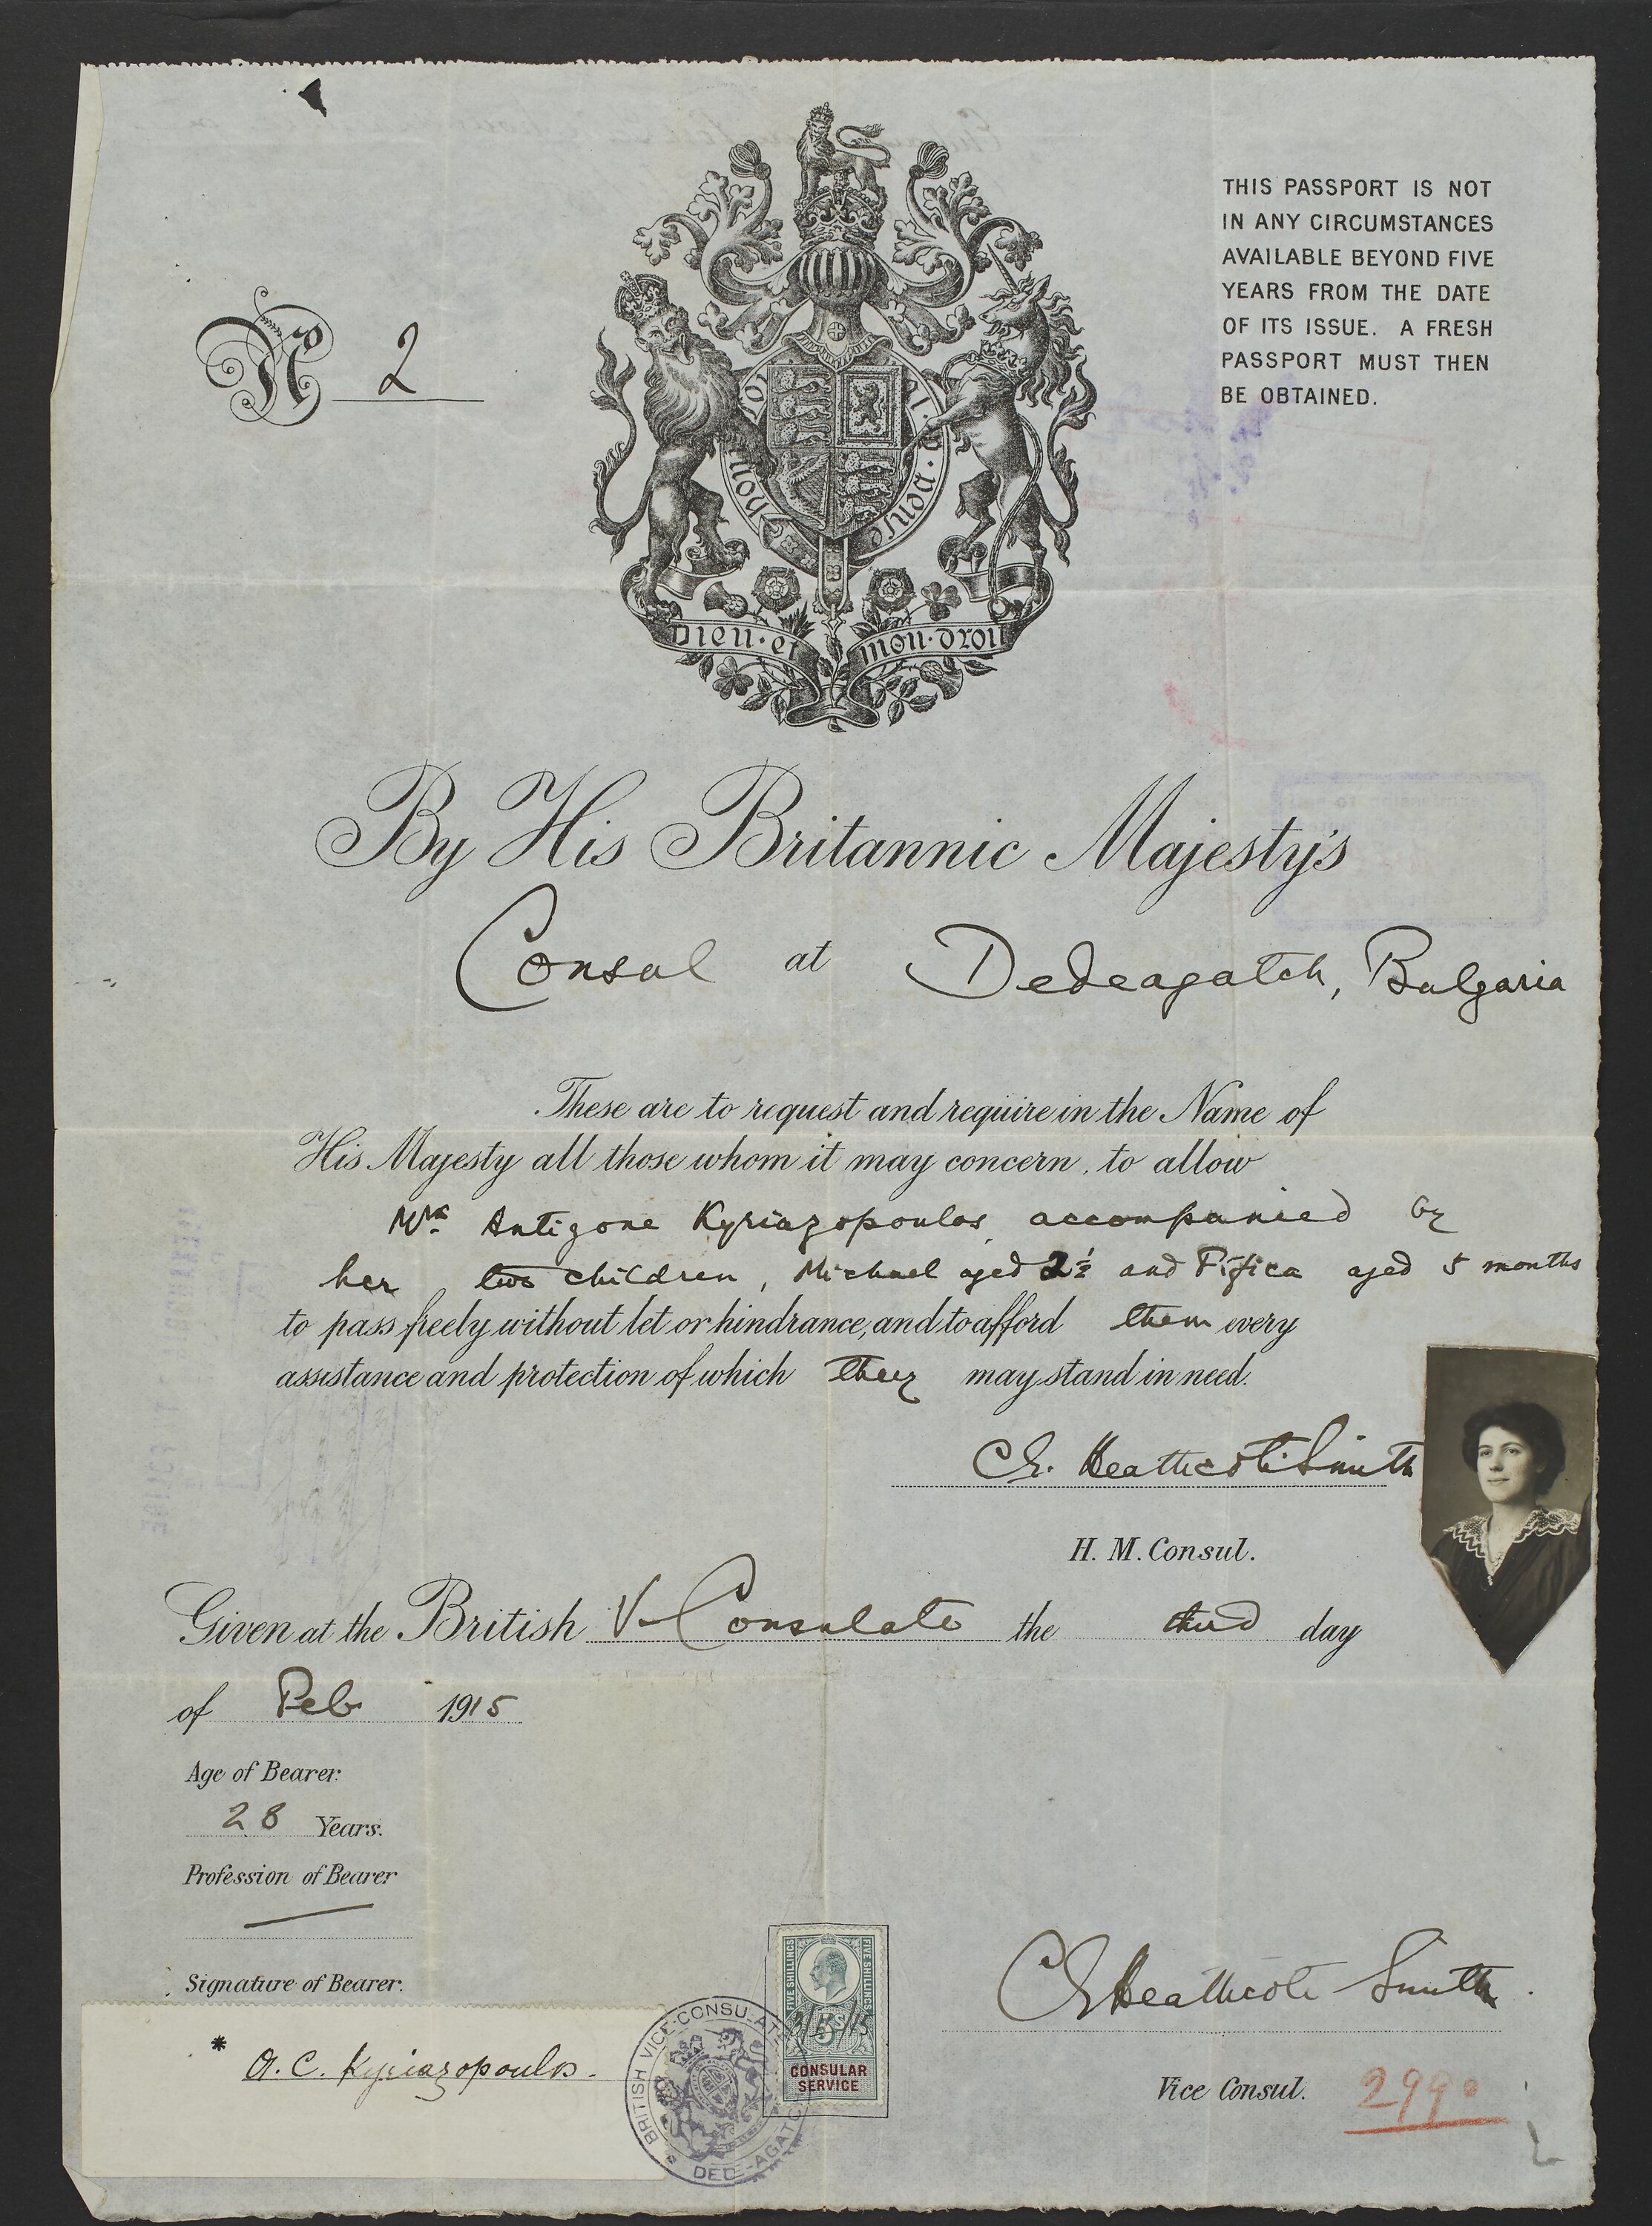 THIS PASSPORT IS NOT
IN ANY CIRCUMSTANCES
AVAILABLE BEYOND FIVE
YEARS FROM THE DATE
OF ITS ISSUE. A FRESH
PASSPORT MUST THEN
BE OBTAINED.
No 2
Dieu·et mon·droit
By His Britannic Majesty's
Consul at Dedeagatch, Bulgaria
These are to request and require in the Name of
His Majesty all those whom it may concern, to allow
Mrs Antigone Kyriazopoulos, accompanied by
her two children, Michael aged 2½ and Fifica aged 5 months
to pass freely without let or hindrance, and to afford them every
assistance and protection of which they may stand in need.
C E. Heathcote Smith
H. M. Consul.
Given at the British V-Consulate the third day
of Feb 1915
Age of Bearer:
28 Years.
Profession of Bearer
Signature of Bearer.
* A. C. Kyriazopoulos.
BRITISH VICE-CONSULATE
FIVE SHILLINGS FIVE SHILLINGS
5s
CONSULAR
SERVICE
C E Heathcote Smith.
Vice Consul. 2990